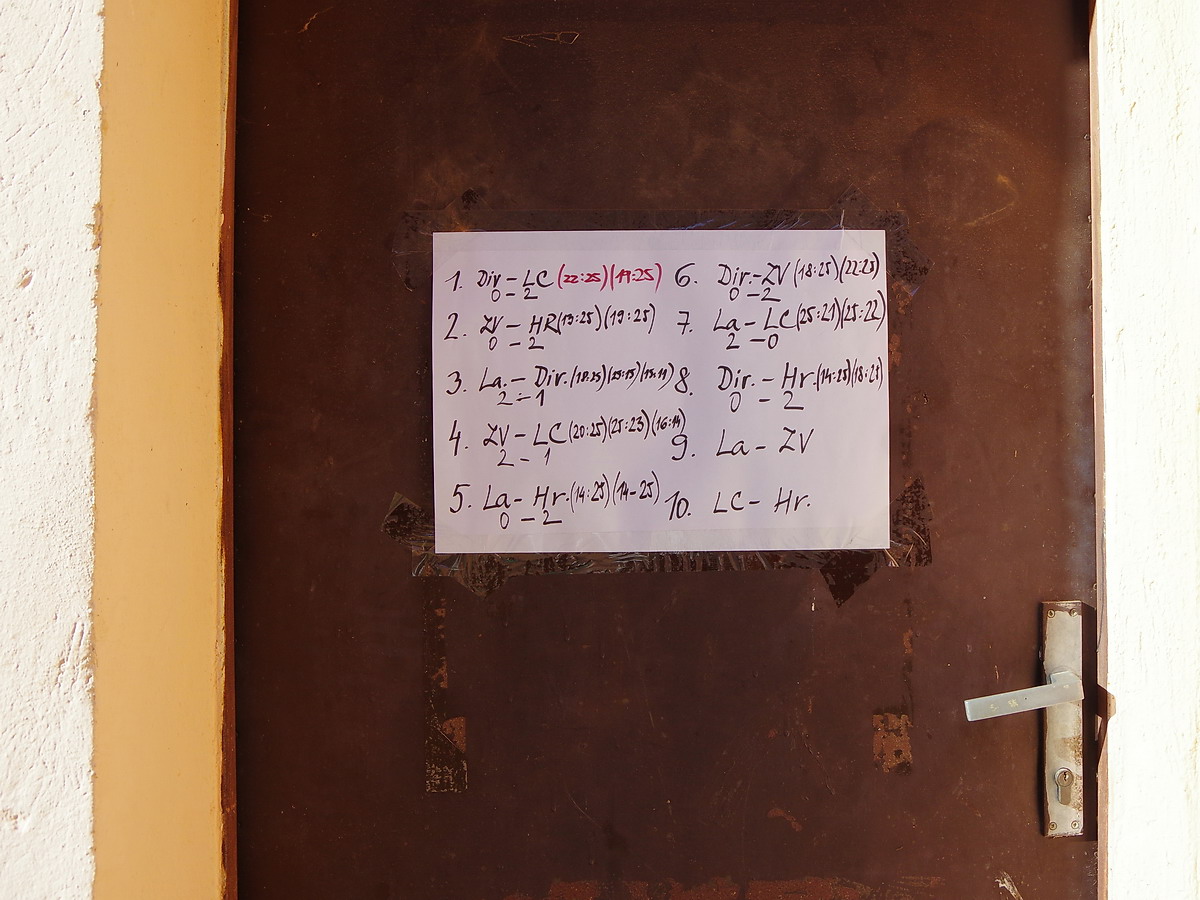 1. Div - LC (22:25)(17:25)
0 - 2
2. ZV - HR (19:25)(19:25)
0 - 2
3. La. - Dir.
2 - 1
4. ZV - LC (20:25)(25:23)(16:14)
2 - 1
5. La - Hr. (14:25)(14-25)
0 - 2
6. Dir. - ZV (18:25)(22:25)
0 - 2
7. La - LC (25:21)(25:22)
2 - 0
8. Dir. - Hr. (14:25)(18:25)
0 - 2
9. La - ZV
10. LC - Hr.